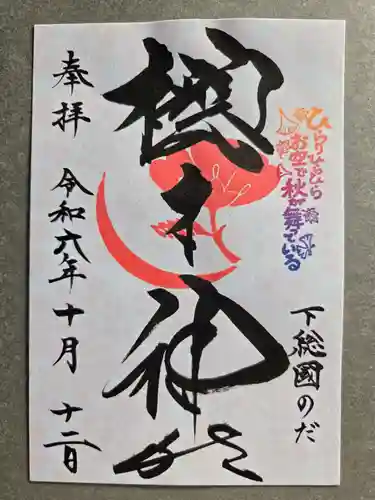 ひらりひらひら
お空で秋が舞っている
下総國のだ
櫻木神社
奉拝
令和六年十月十二日